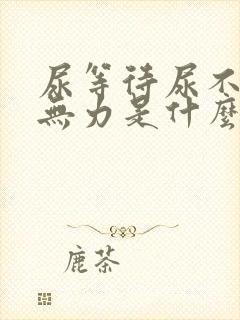 尿等待尿不
無力是什麼
鹿茶